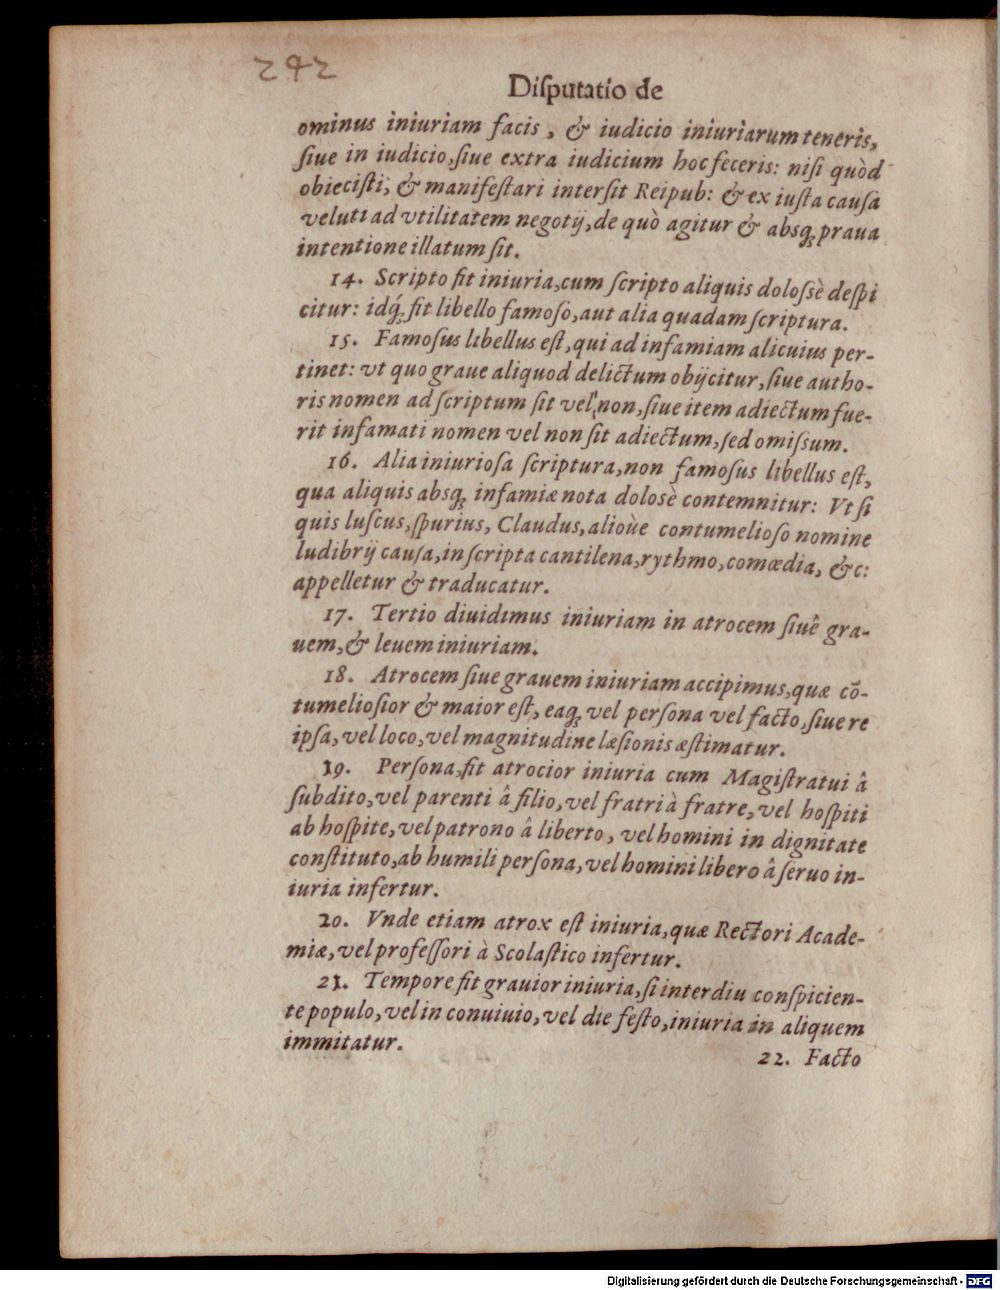 242
Diſputatio de
ominus iniuriam facis, & iudicio iniuriarum teneris,
ſiue in iudicio, ſiue extra iudicium hoc feceris: niſi quòd
obieciſti, & manifeſtari interſit Reipub: & ex iuſta cauſa
veluti ad vtilitatem negotij, de quò agitur & absq; praua
intentione illatum ſit.
14. Scripto fit iniuria, cum ſcripto aliquis doloſsè deſpi
citur: idq́; fit libello famoſo, aut alia quadam ſcriptura.
15. Famoſus libellus eſt, qui ad infamiam alicuius per-
tinet: vt quo graue aliquod delictum obijcitur, ſiue autho-
ris nomen adſcriptum ſit vel non, ſiue item adiectum fue-
rit infamati nomen vel non ſit adiectum, ſed omiſsum.
16. Alia iniurioſa ſcriptura, non famoſus libellus eſt,
qua aliquis absq; infamiæ nota dolosè contemnitur: Vt ſi
quis luſcus, ſpurius, Claudus, alioùe contumelioſo nomine
ludibrij cauſa, in ſcripta cantilena, rythmo, comœdia, &c:
appelletur & traducatur.
17. Tertio diuidimus iniuriam in atrocem ſiuê gra-
uem, & leuem iniuriam.
18. Atrocem ſiue grauem iniuriam accipimus, quæ cō-
tumelioſior & maior eſt, eaq; vel perſona vel facto, ſiue re
ipſa, vel loco, vel magnitudine læſionis æſtimatur.
19. Perſona, fit atrocior iniuria cum Magiſtratui â
ſubdito, vel parenti â filio, vel fratri à fratre, vel hoſpiti
ab hoſpite, vel patrono â liberto, vel homini in dignitate
conſtituto, ab humili perſona, vel homini libero â ſeruo in-
iuria infertur.
20. Vnde etiam atrox eſt iniuria, quæ Rectori Acade-
miæ, vel profeſſori à Scolaſtico infertur.
21. Tempore fit grauior iniuria, ſi interdiu conſpicien-
te populo, vel in conuiuio, vel die feſto, iniuria in aliquem
immitatur.
22. Facto
Digitalisierung gefördert durch die Deutsche Forschungsgemeinschaft - DFG